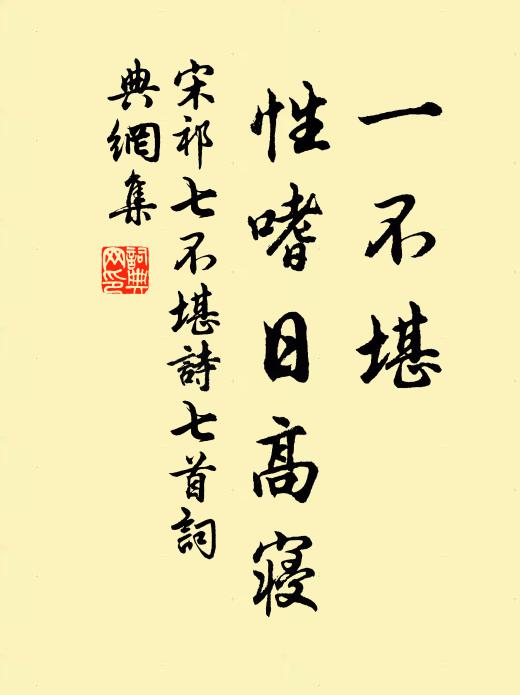 一不堪
性嗜日高寝
宋祁七不堪詩七首詞
典網集
詞典
网印